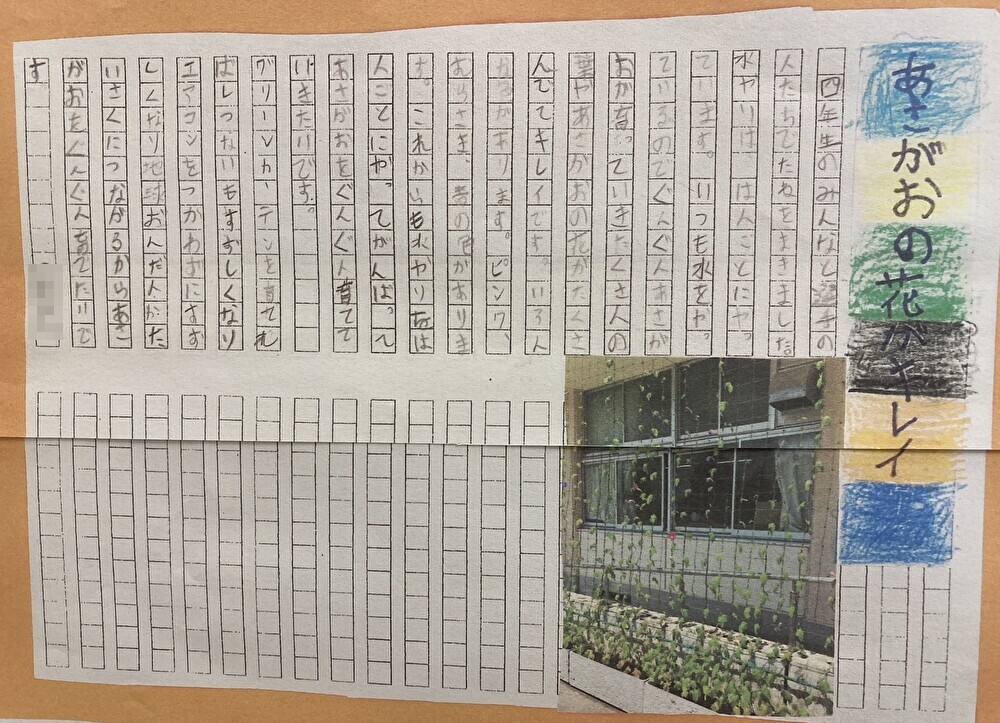 あさがおの花がキレイ
四年生のみんなと選手の
人たちでたねをまきました。
水やりは、はんごとにやっ
ています。いつも水をやっ
ているのでぐんぐんあさが
おが育っていきたくさんの
葉やあさがおの花がたくさ
んでてキレイです。いろん
な色があります。ピンク、
むらさき、青の色がありま
す。これからも水やりをは
んごとにやってがんばって
あさがおをぐんぐん育てて
いきたいです。
グリーンカーテンを育てれ
ばしつないもすずしくなり
エアコンをつかわずにすず
しくなり地球おんだんかた
いさくにつながるからあさ
がおをぐんぐん育てたいで
す。